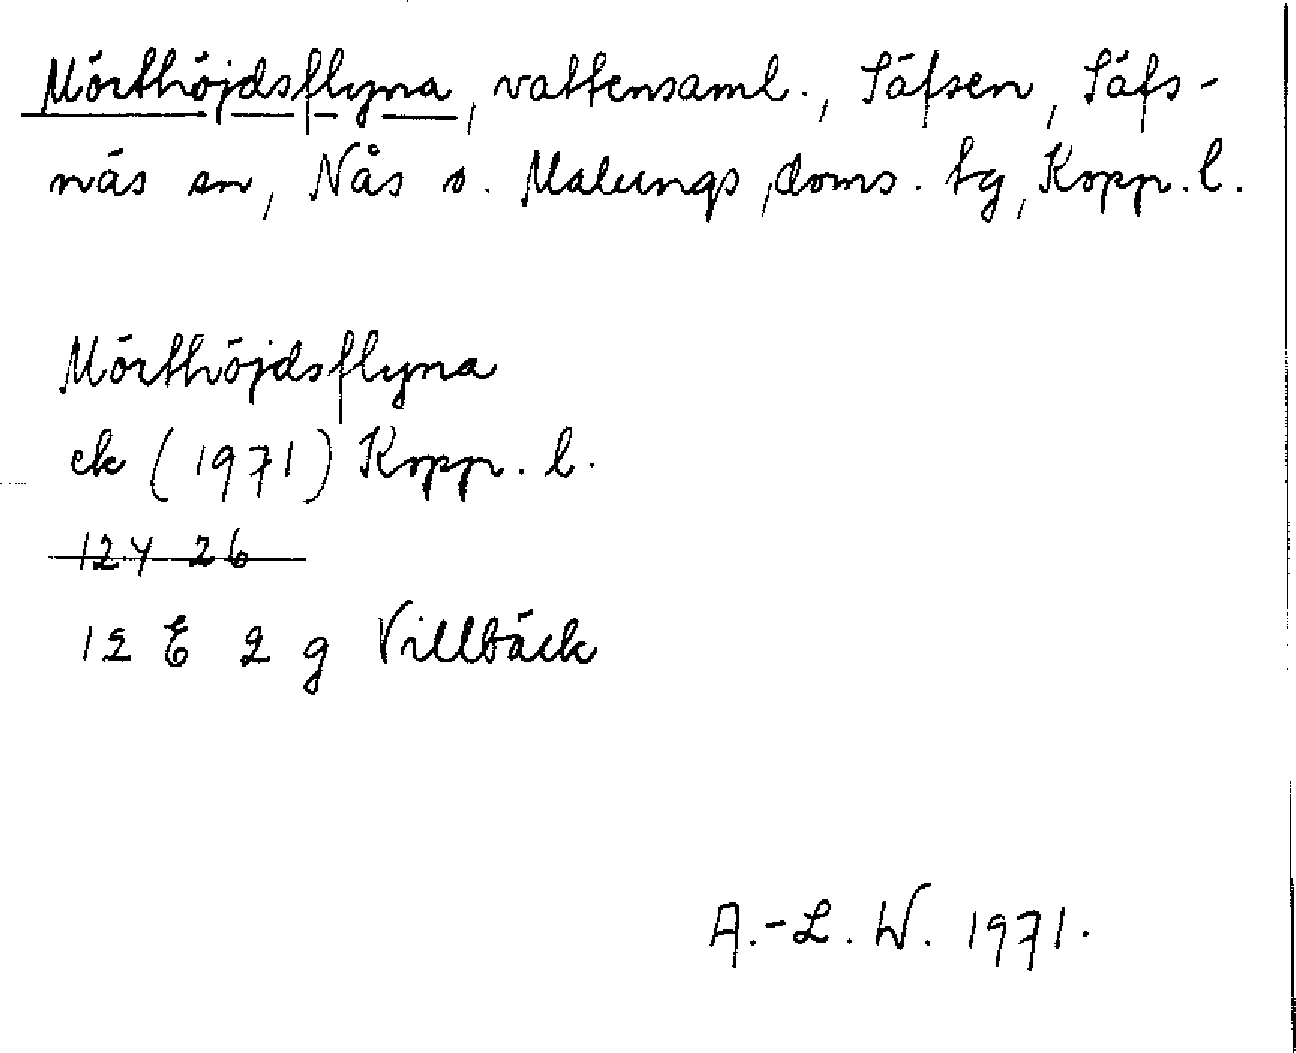 Mörthöjdsflyna, vattensaml., Säfsen, Säfs-
näs sn, Nås o. Malungs, doms. tg, Kopp. l.
Mörthöjdsflyna
ek (1971) Kopp. l.
12 Y 26
12 E 2 g Villbäck
A.-L. W. 1971.